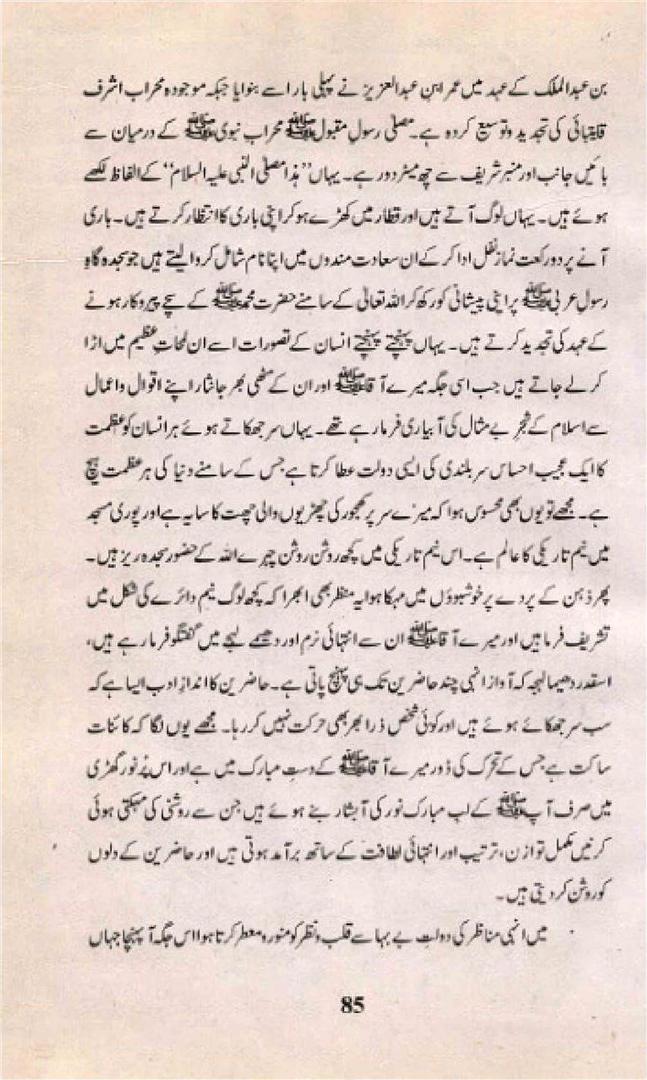 بن عبدالملک کے عہد میں عمر ابن عبدالعزیز نے پہلی بار اسے بنوایا جبکہ موجودہ محراب اشرف
قایتبائی کی تجدید و توسیع کردہ ہے۔ مصلی رسول مقبول ﷺ محراب نبوی ﷺ کے درمیان سے
بائیں جانب اور منبر شریف سے چھ میٹر دور ہے۔ یہاں ’’ہذا مصلی النبی علیہ السلام‘‘ کے الفاظ لکھے
ہوئے ہیں۔ یہاں لوگ آتے ہیں اور قطار میں کھڑے ہو کر اپنی باری کا انتظار کرتے ہیں۔ باری
آنے پر دو رکعت نماز نفل ادا کر کے ان سعادت مندوں میں اپنا نام شامل کروا لیتے ہیں جو سجدہ گاہِ
رسول عربی ﷺ پر اپنی پیشانی کو رکھ کر اللہ تعالیٰ کے سامنے حضرت محمد ﷺ کے سچے پیروکار ہونے
کے عہد کی تجدید کرتے ہیں۔ یہاں پہنچتے پہنچتے انسان کے تصورات اسے ان لمحاتِ عظیم میں اڑا
کر لے جاتے ہیں جب اسی جگہ میرے آقا ﷺ اور ان کے مٹھی بھر جانثار اپنے اقوال و اعمال
سے اسلام کے شجرِ بے مثال کی آبیاری فرما رہے تھے۔ یہاں سر جھکاتے ہوئے ہر انسان کو عظمت
کا ایک عجیب احساس سر بلندی کی ایسی دولت عطا کرتا ہے جس کے سامنے دنیا کی ہر عظمت ہیچ
ہے۔ مجھے تو یوں بھی محسوس ہوا کہ میرے سر پر کھجور کی چھڑیوں والی چھت کا سایہ ہے اور پوری مسجد
میں نیم تاریکی کا عالم ہے۔ اس نیم تاریکی میں کچھ روشن روشن چہرے اللہ کے حضور سجدہ ریز ہیں۔
پھر ذہن کے پردے پر خوشبوؤں میں مہکا ہوا یہ منظر بھی ابھرا کہ کچھ لوگ نیم دائرے کی شکل میں
تشریف فرما ہیں اور میرے آقا ﷺ ان سے انتہائی نرم اور دھیمے لہجے میں گفتگو فرما رہے ہیں،
اسقدر دھیما لہجہ کہ آواز انہی چند حاضرین تک ہی پہنچ پاتی ہے۔ حاضرین کا اندازِ ادب ایسا ہے کہ
سب سر جھکائے ہوئے ہیں اور کوئی شخص ذرا بھر بھی حرکت نہیں کر رہا۔ مجھے یوں لگا کہ کائنات
ساکت ہے جس کے تحرک کی ڈور میرے آقا ﷺ کے دستِ مبارک میں ہے اور اس پُر نور گھڑی
میں صرف آپ ﷺ کے لب مبارک نور کی آبشار بنے ہوئے ہیں جن سے روشنی کی مہکتی ہوئی
کرنیں مکمل توازن، ترتیب اور انتہائی لطافت کے ساتھ برآمد ہوتی ہیں اور حاضرین کے دلوں
کو روشن کر دیتی ہیں۔
میں انہی مناظر کی دولتِ بے بہا سے قلب و نظر کو منور و معطر کرتا ہوا اس جگہ آ پہنچا جہاں
85